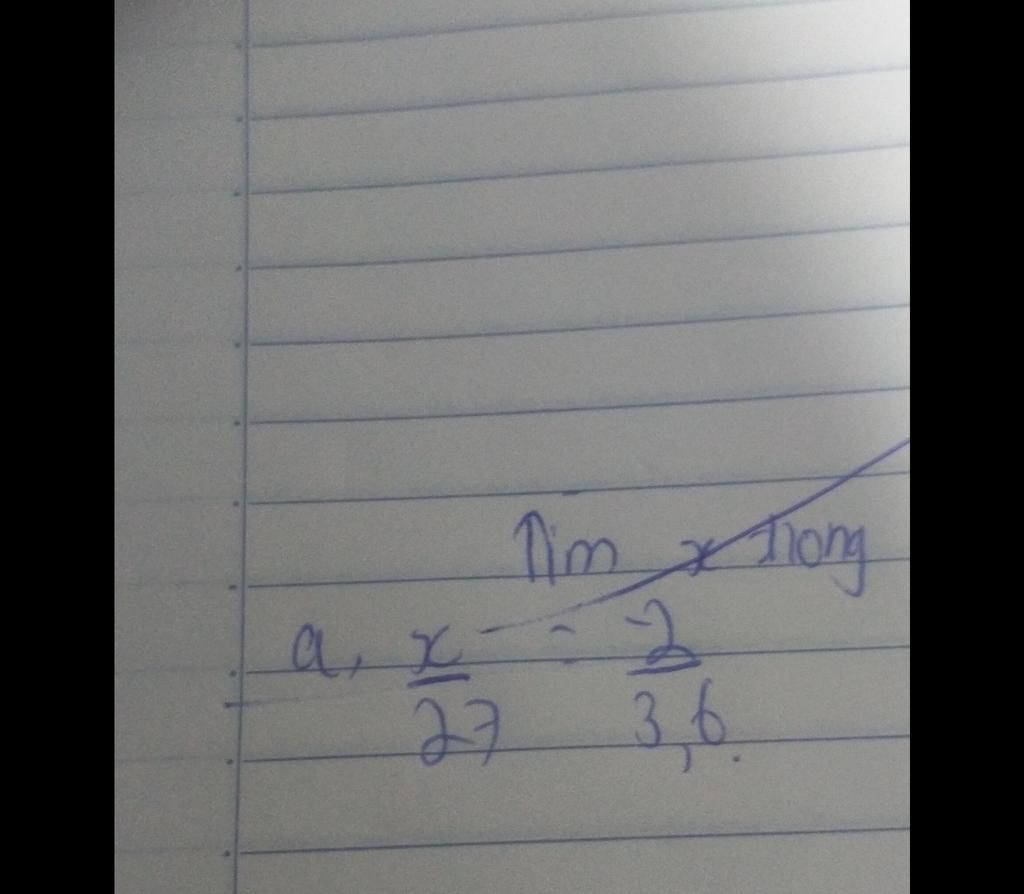 Tìm x trong
a, x/27 = -2/3,6.